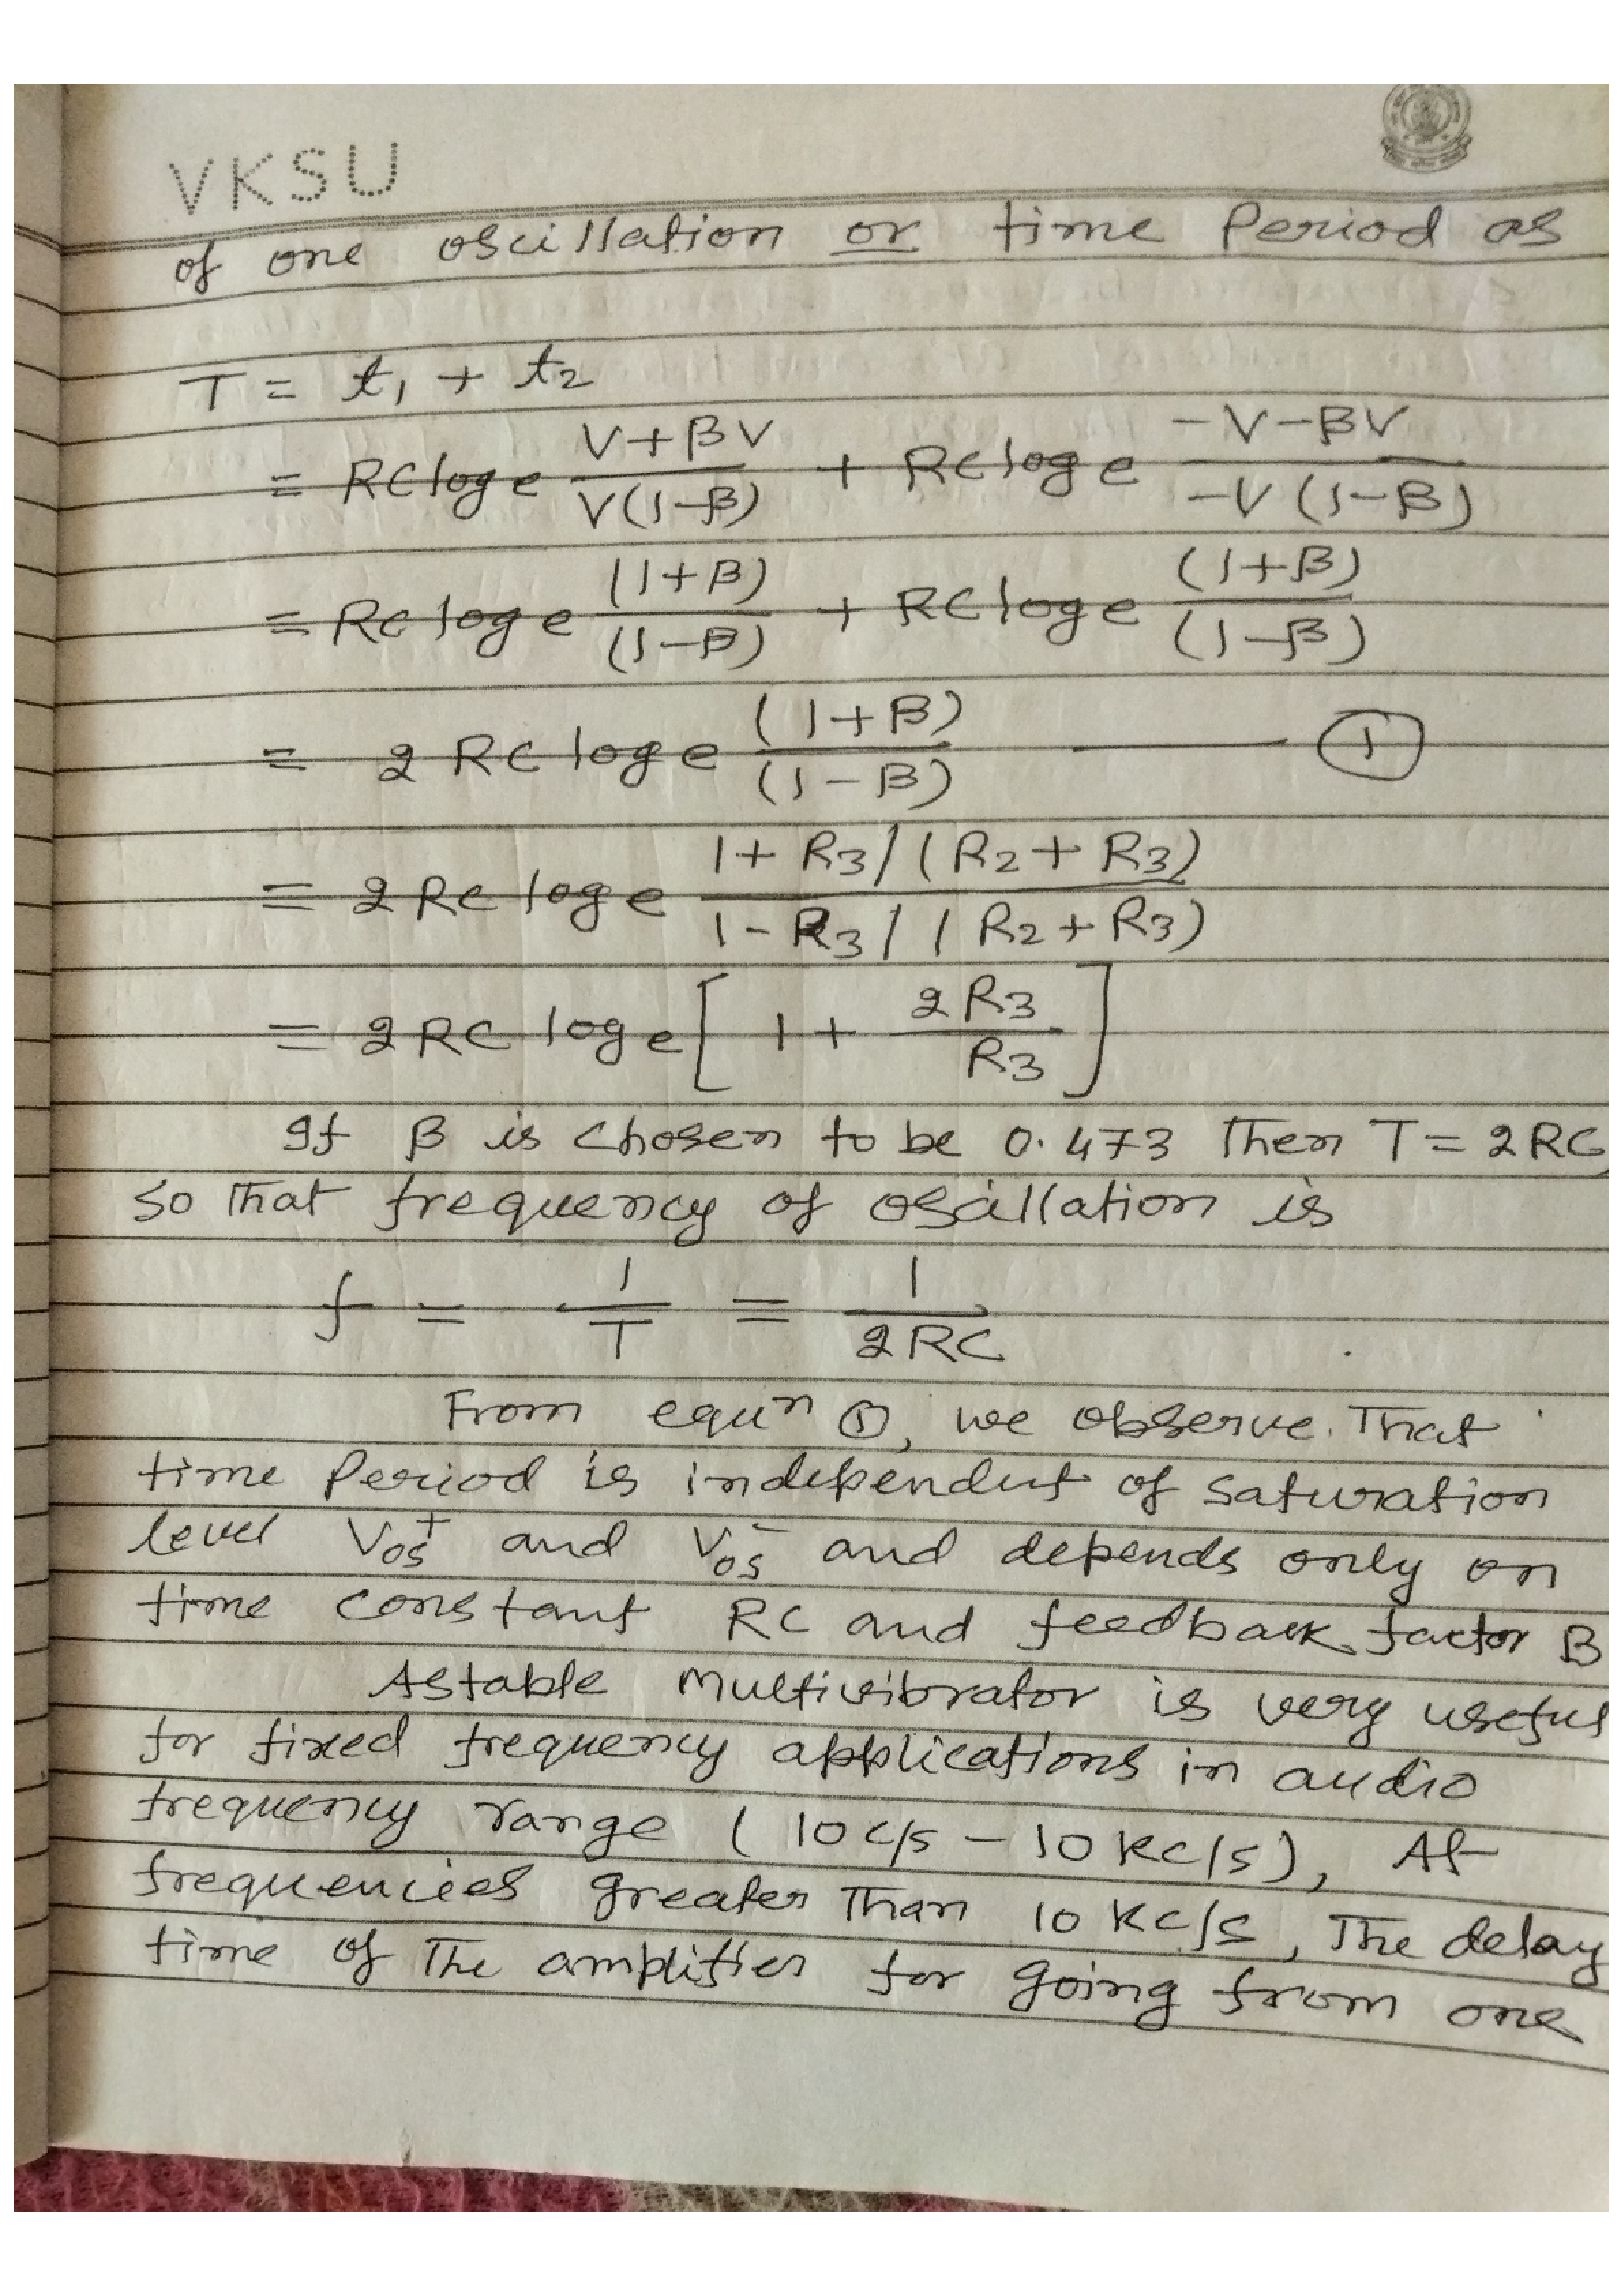 VKSU
of one oscillation or time Period as
T = t₁ + t₂
= RC loge (V+βV)/(V(1-β)) + RC loge (-V-βV)/(-V(1-β))
= RC loge (1+β)/(1-β) + RC loge (1+β)/(1-β)
= 2 RC loge (1+β)/(1-β) —— ①
= 2 RC loge (1+ R3/(R2+R3))/(1- R3/(R2+R3))
= 2RC loge [ 1 + 2R3/R3 ]
If β is chosen to be 0.473 Then T = 2RC
so that frequency of oscillation is
f = 1/T = 1/2RC
From equⁿ ①, we observe that
time Period is independent of saturation
level Vos⁺ and Vos⁻ and depends only on
time constant RC and feedback factor B
Astable Multivibrator is very useful
for fixed frequency applications in audio
frequency range (10 c/s - 10 kc/s), At
frequencies greater than 10 kc/s, The delay
time of The amplifier for going from one